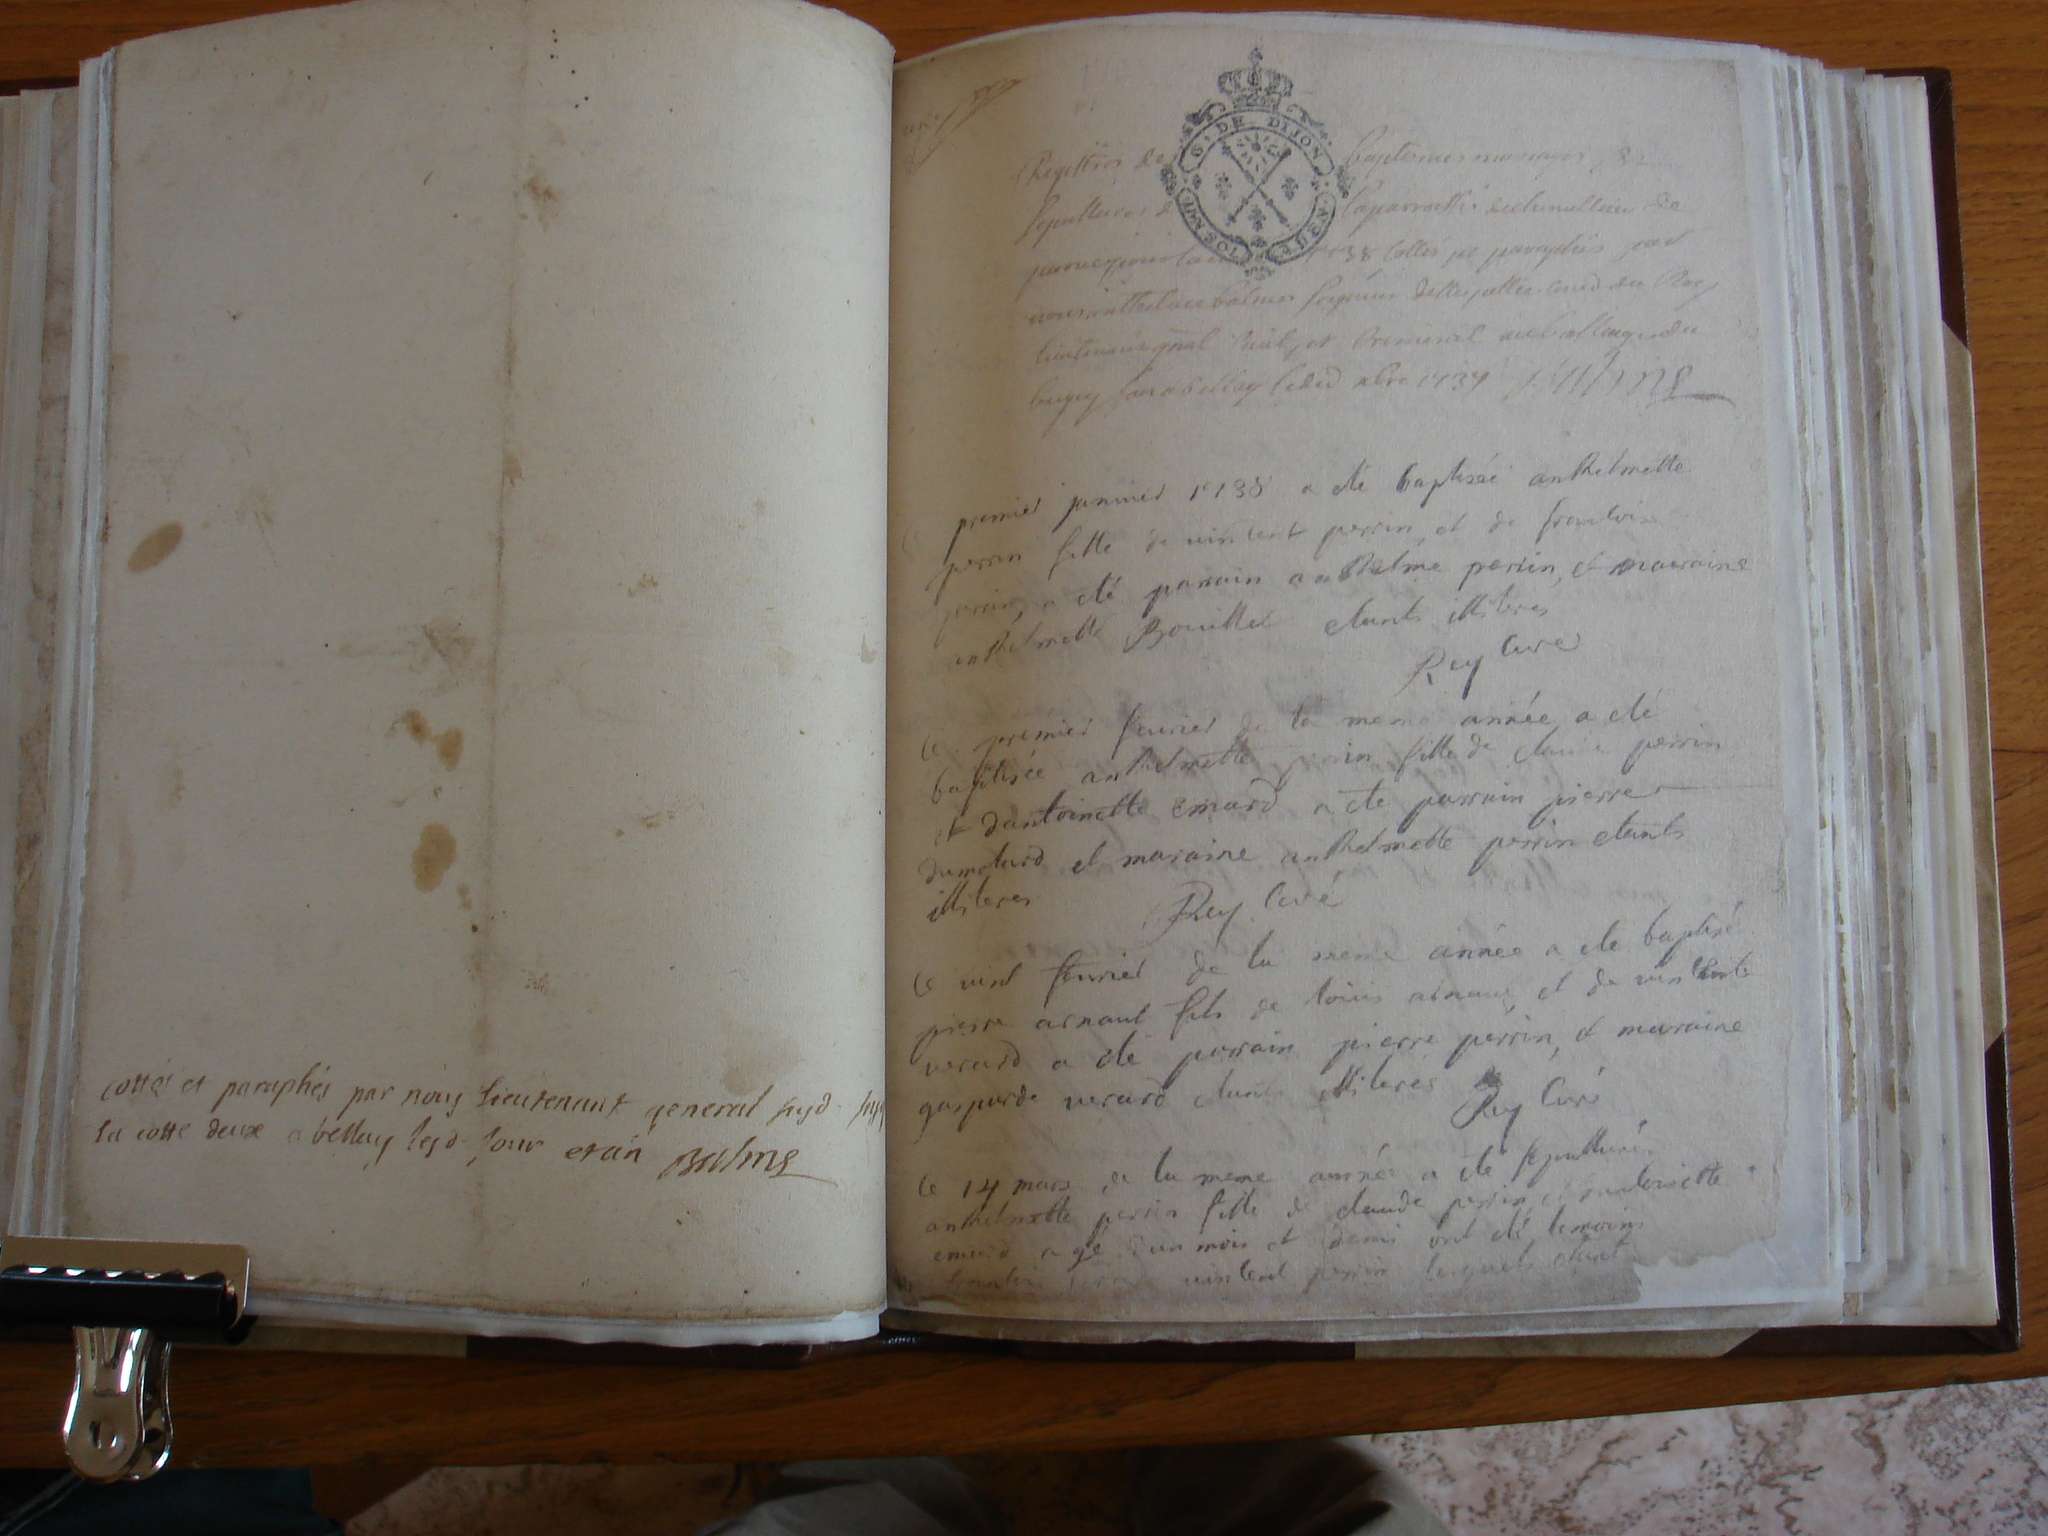 cottés et paraphés par nous lieutenant general susd.
la cotte deux a bellay lesd. jour et an Balme
G. DE DIJON
Registres de baptemes mariages et
sepultures de la parroisse de
1738 cottés et paraphés par
nous balme seigneur du Roy
lieutenant gnal civil et criminel au balliage du
bugey a bellay 1737 Balme
premier janvier 1738 a été baptisée anthelmette
perrin fille de vincent perrin, et de
perrin, a été parrain anthelme perrin, et maraine
anthelmette Bouillet etants illiteres
Rey Curé
le premier fevrier de la meme année a été
baptisée anthelmette perrin fille de claude perrin
et dantoinette emard a été parrain pierre
dumolard et maraine anthelmette perrin etants
illiteres Rey Curé
le vint fevrier de la meme année a été baptisé
pierre arnaut fils de louis arnaut, et de vincente
verard a été parrain pierre perrin, et maraine
gasparde verard etants illiteres Rey Curé
le 14 mars de la meme année a été sepulturée
anthelmette perrin fille de claude perrin, et antoinette
emard agé d'un mois et demi ont été temoins
vincent perrin lesquels etant